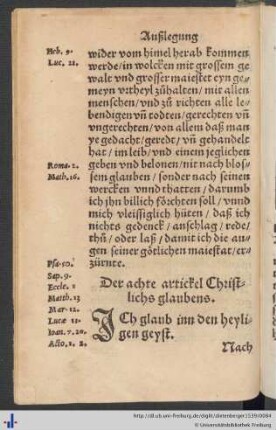 Außlegung
Heb. 9.
Luc. 21.
wider vom himel herab kommen
werde/in wolcken mit grossem ge
walt vnd grosser maiestet eyn ge-
meyn vrtheyl zůhalten/mit allen
menschen/vnd zů richten alle le-
bendigen vñ todten/gerechten vñ
vngerechten/von allem daß man
ye gedacht/geredt/vñ gehandelt
hat/im leib/vnd einem jeglichen
Roma. 2.
geben vnd belonen/nit nach blos-
Math. 16.
sem glauben/sonder nach seinen
wercken vnnd thatten/darumb
ich jhn billich förchten soll/vnnd
mich vleissiglich hüten/daß ich
nichts gedenck/anschlag/rede/
thů/oder laß/damit ich die au-
gen seiner götlichen maiestat/er-
zürnte.
Psa. 50.
Sap. 9.
Eccle. 1
Matth. 13
Mar. 12.
Lucæ 12.
Ioan. 7. 20.
Acto. 1. 2.
Der achte artickel Christ-
lichs glaubens.
ICh glaub inn den heyli-
gen geyst.
Nach
http://dl.ub.uni-freiburg.de/diglit/dietenberger1539/0084
© Universitätsbibliothek Freiburg